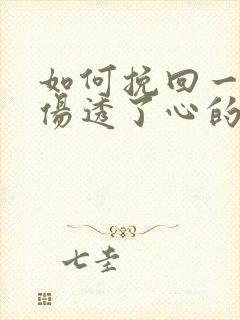 如何挽回一
傷透了心的
七圭